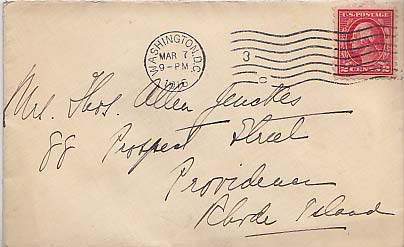 WASHINGTON, D.C.
MAR 7
9-PM
3
C
U.S. POSTAGE
2 CENTS 2
Mrs. Thos. Allen Jenckes
88 Prospect Street
Providence
Rhode Island